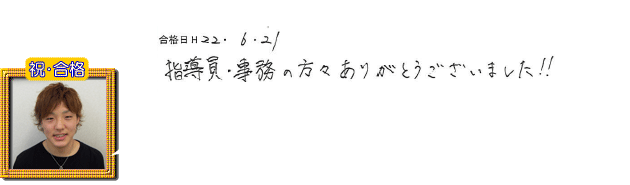 合格日 H22. 6.21
指導員・事務の方々ありがとうございました!!
祝・合格